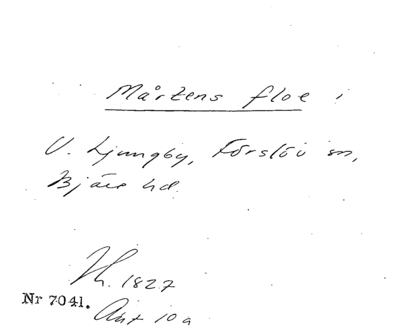 Mårtens floe i
V. Ljungby, Förslöv sn,
Bjäre hd.
H. 1827
Nr 7041.
Akt 10a